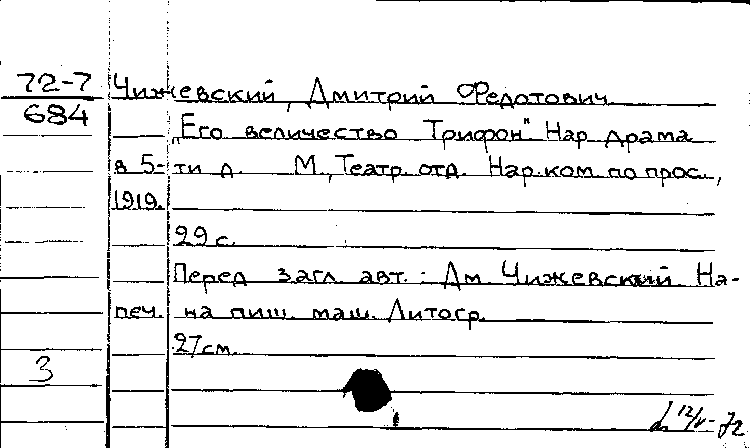 72-7
684
Чижевский, Дмитрий Федотович
"Его величество Трифон". Нар драма
в 5-ти д. М., Театр. отд. Нар.ком. по прос.,
1919.
29 с.
Перед загл. авт.: Дм. Чижевский На-
печ. на пиш. маш. Литогр.
27 см.
3
12/V-72